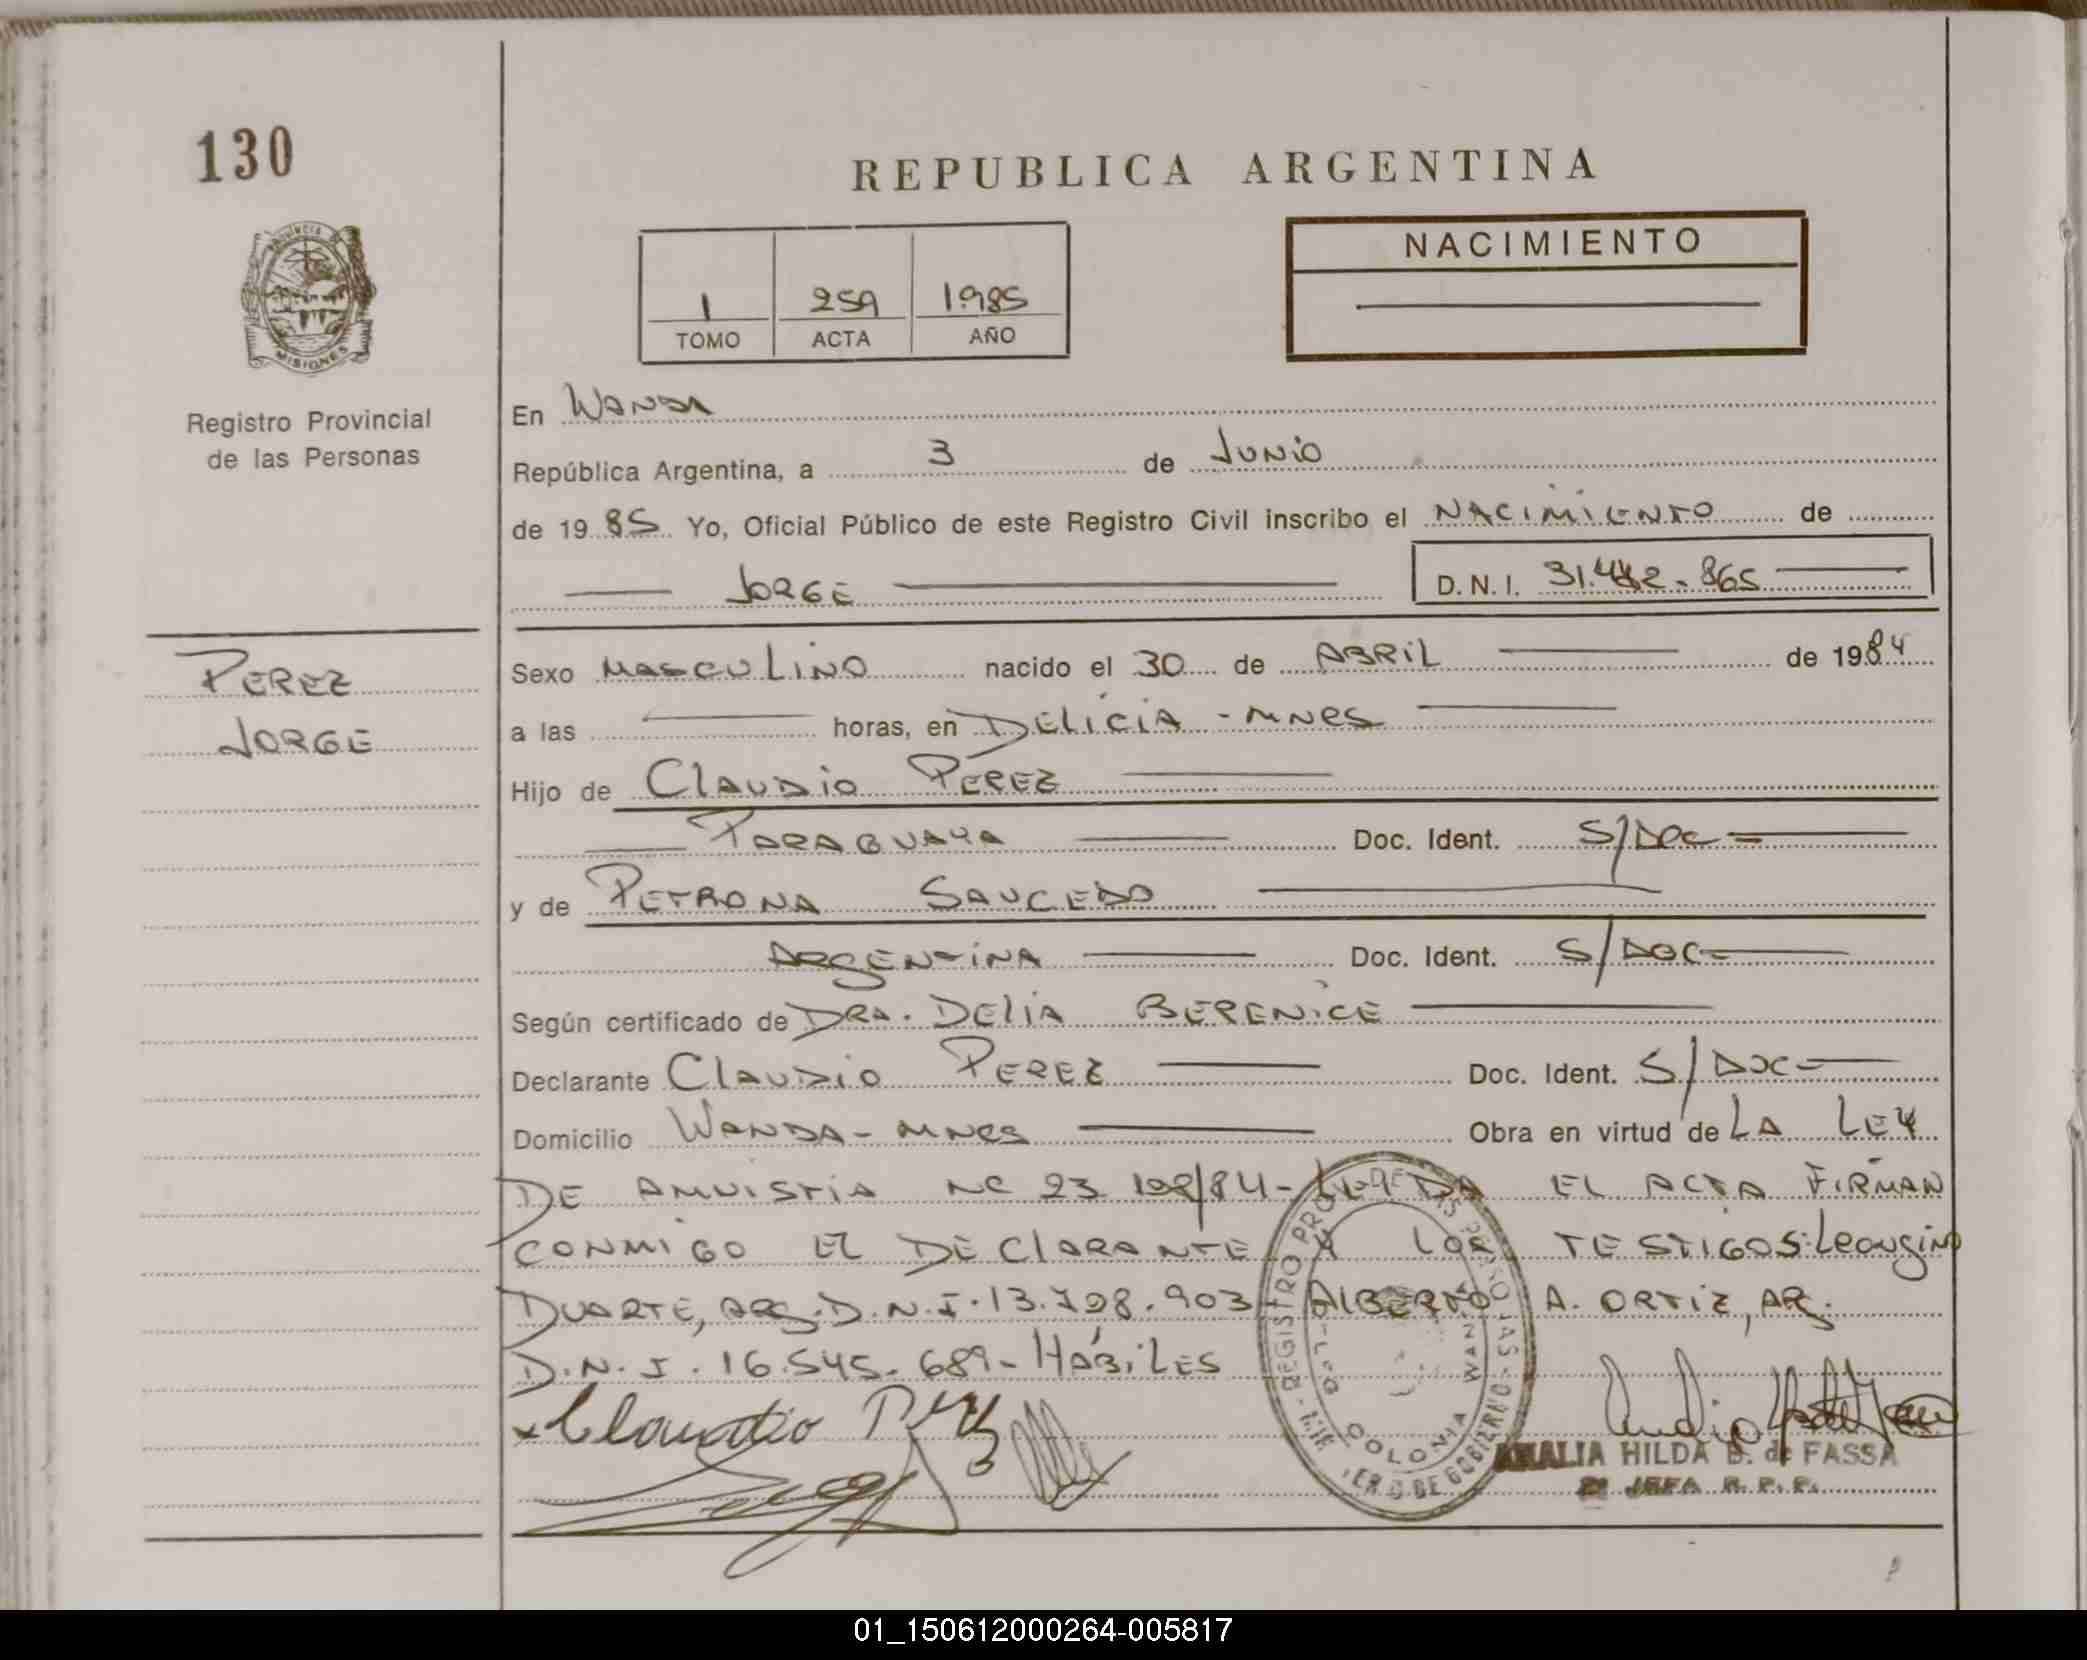 130
REPUBLICA ARGENTINA
PROVINCIA DE
MISIONES
Registro Provincial
de las Personas
1 259 1985
TOMO ACTA AÑO
NACIMIENTO
En WANDA
República Argentina, a 3 de JUNIO
de 1985 Yo, Oficial Público de este Registro Civil inscribo el NACIMIENTO de
JORGE D.N.I. 31.482.865
PEREZ
JORGE
Sexo MASCULINO nacido el 30 de ABRIL de 1984
a las horas, en DELICIA - MNES
Hijo de CLAUDIO PEREZ
PARAGUAYA Doc. Ident. S/DOC
y de PETRONA SAUCEDO
ARGENTINA Doc. Ident. S/DOC
Según certificado de DRA. DELIA BERENICE
Declarante CLAUDIO PEREZ Doc. Ident. S/DOC
Domicilio WANDA - MNES Obra en virtud de LA LEY
DE AMNISTIA 23 /84 - LEIDA EL ACTA FIRMAN
CONMIGO EL DECLARANTE Y LOS TESTIGOS: Leongino
DUARTE, ARG. D.N.I. 13.798.903 ALBERTO A. ORTIZ, AR.
D.N.I. 16.545.689 - HÁBILES
Claudio Perez
REGISTRO DE LAS PERSONAS
COLONIA WANDA
DE GOBIERNO
ANALIA HILDA B. de FASSA
JEFA R. P. P.
01_150612000264-005817